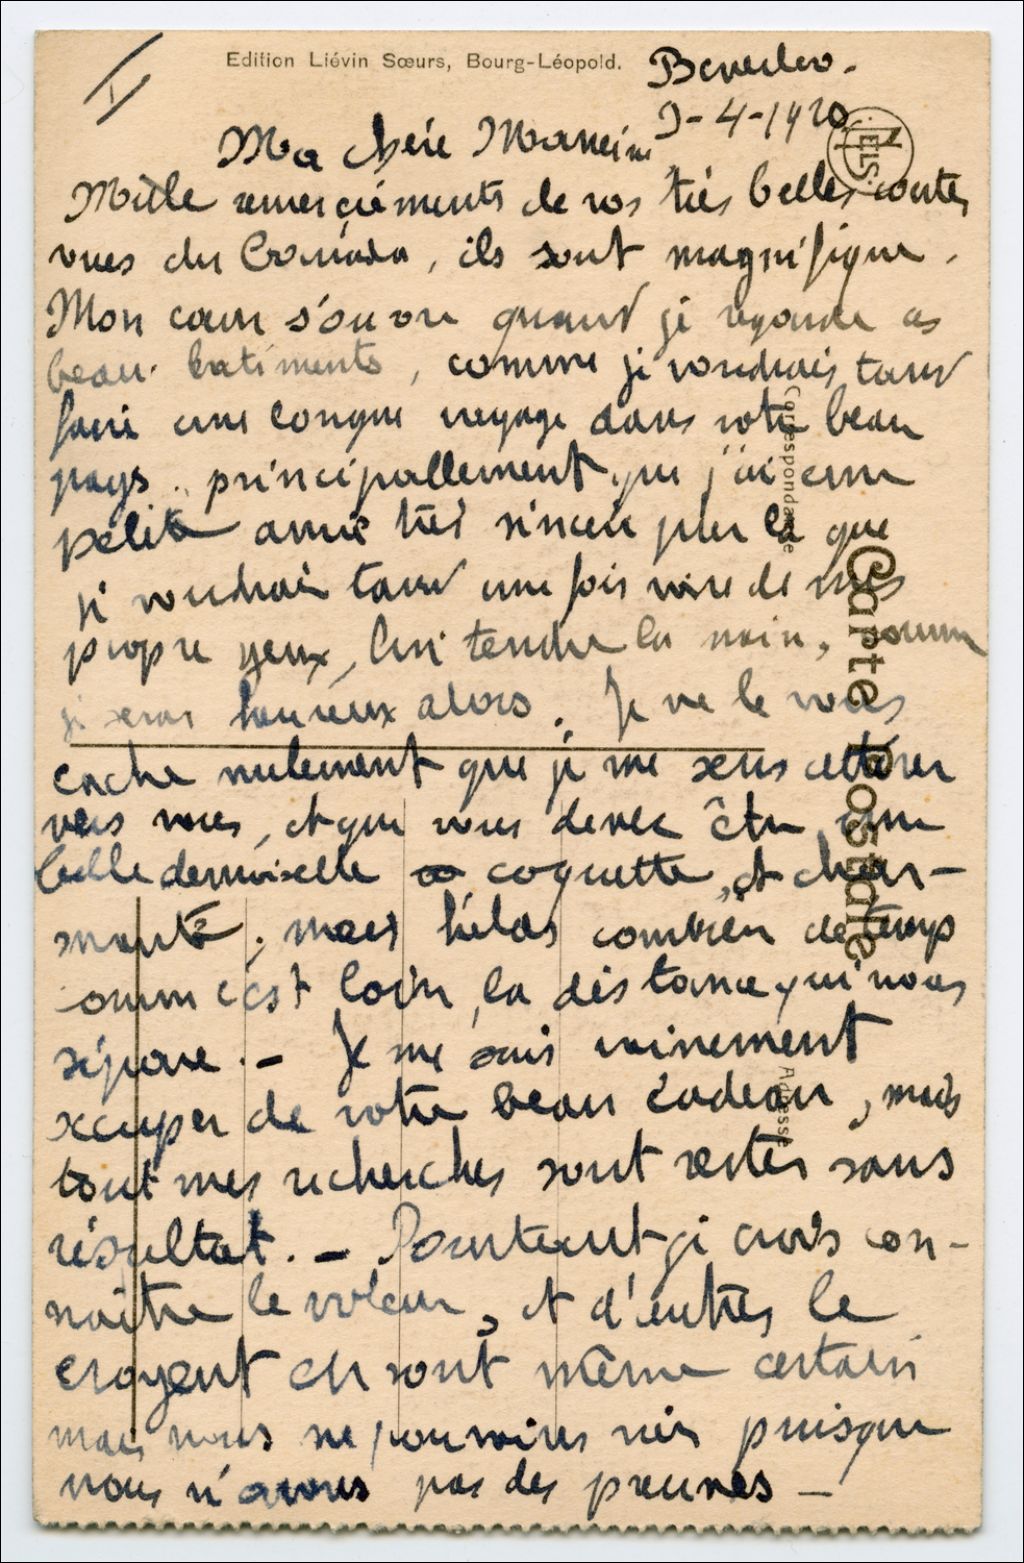 I
Edition Liévin Sœurs, Bourg-Léopold.
Beverloo.
9-4-1920
NELS
Ma chère
Mille remerciements de vos très belles
vues du Canada, ils sont magnifique.
Mon cœur s'ouvre quand je regarde ces
beau batiments, comme je voudrais tant
faire une longue voyage dans votre beau
pays. principallement que j'ai une
petite amie très sincère par là que
je voudrais tant une fois voire de mes
propre yeux, lui tendre la main, comme
je serai heureux alors. Je ne le vous
cache nulement que je me sens attirer
vers vous, et que vous devez être une
belle demoiselle coquette, et char-
mante, mais hélas combien de temps
comm c'est loin, la distance qui nous
sépare. - Je me suis vainement
occuper de votre beau cadeau, mais
tout mes recherches sont restés sans
résultat. - Pourtant je crois con-
naître le voleur, et d'autres le
croyent en sont même certain
mais nous ne pouvons rien puisque
nous n'avons pas des preuves -
Correspondance
Carte Postale
Adresse